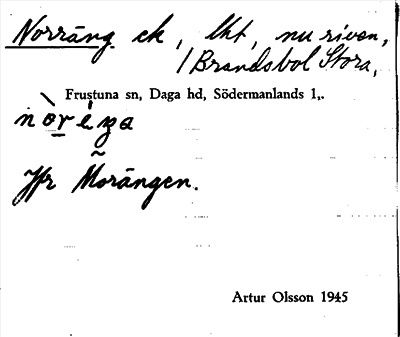 Norräng ck, lht, nu riven,
/Brandsbol Stora,
Frustuna sn, Daga hd, Södermanlands l,.
Jfr Morängen.
Artur Olsson 1945